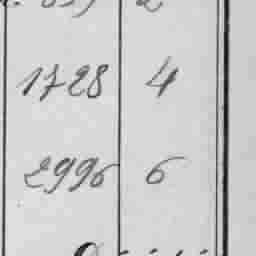 1728 4
2996 6